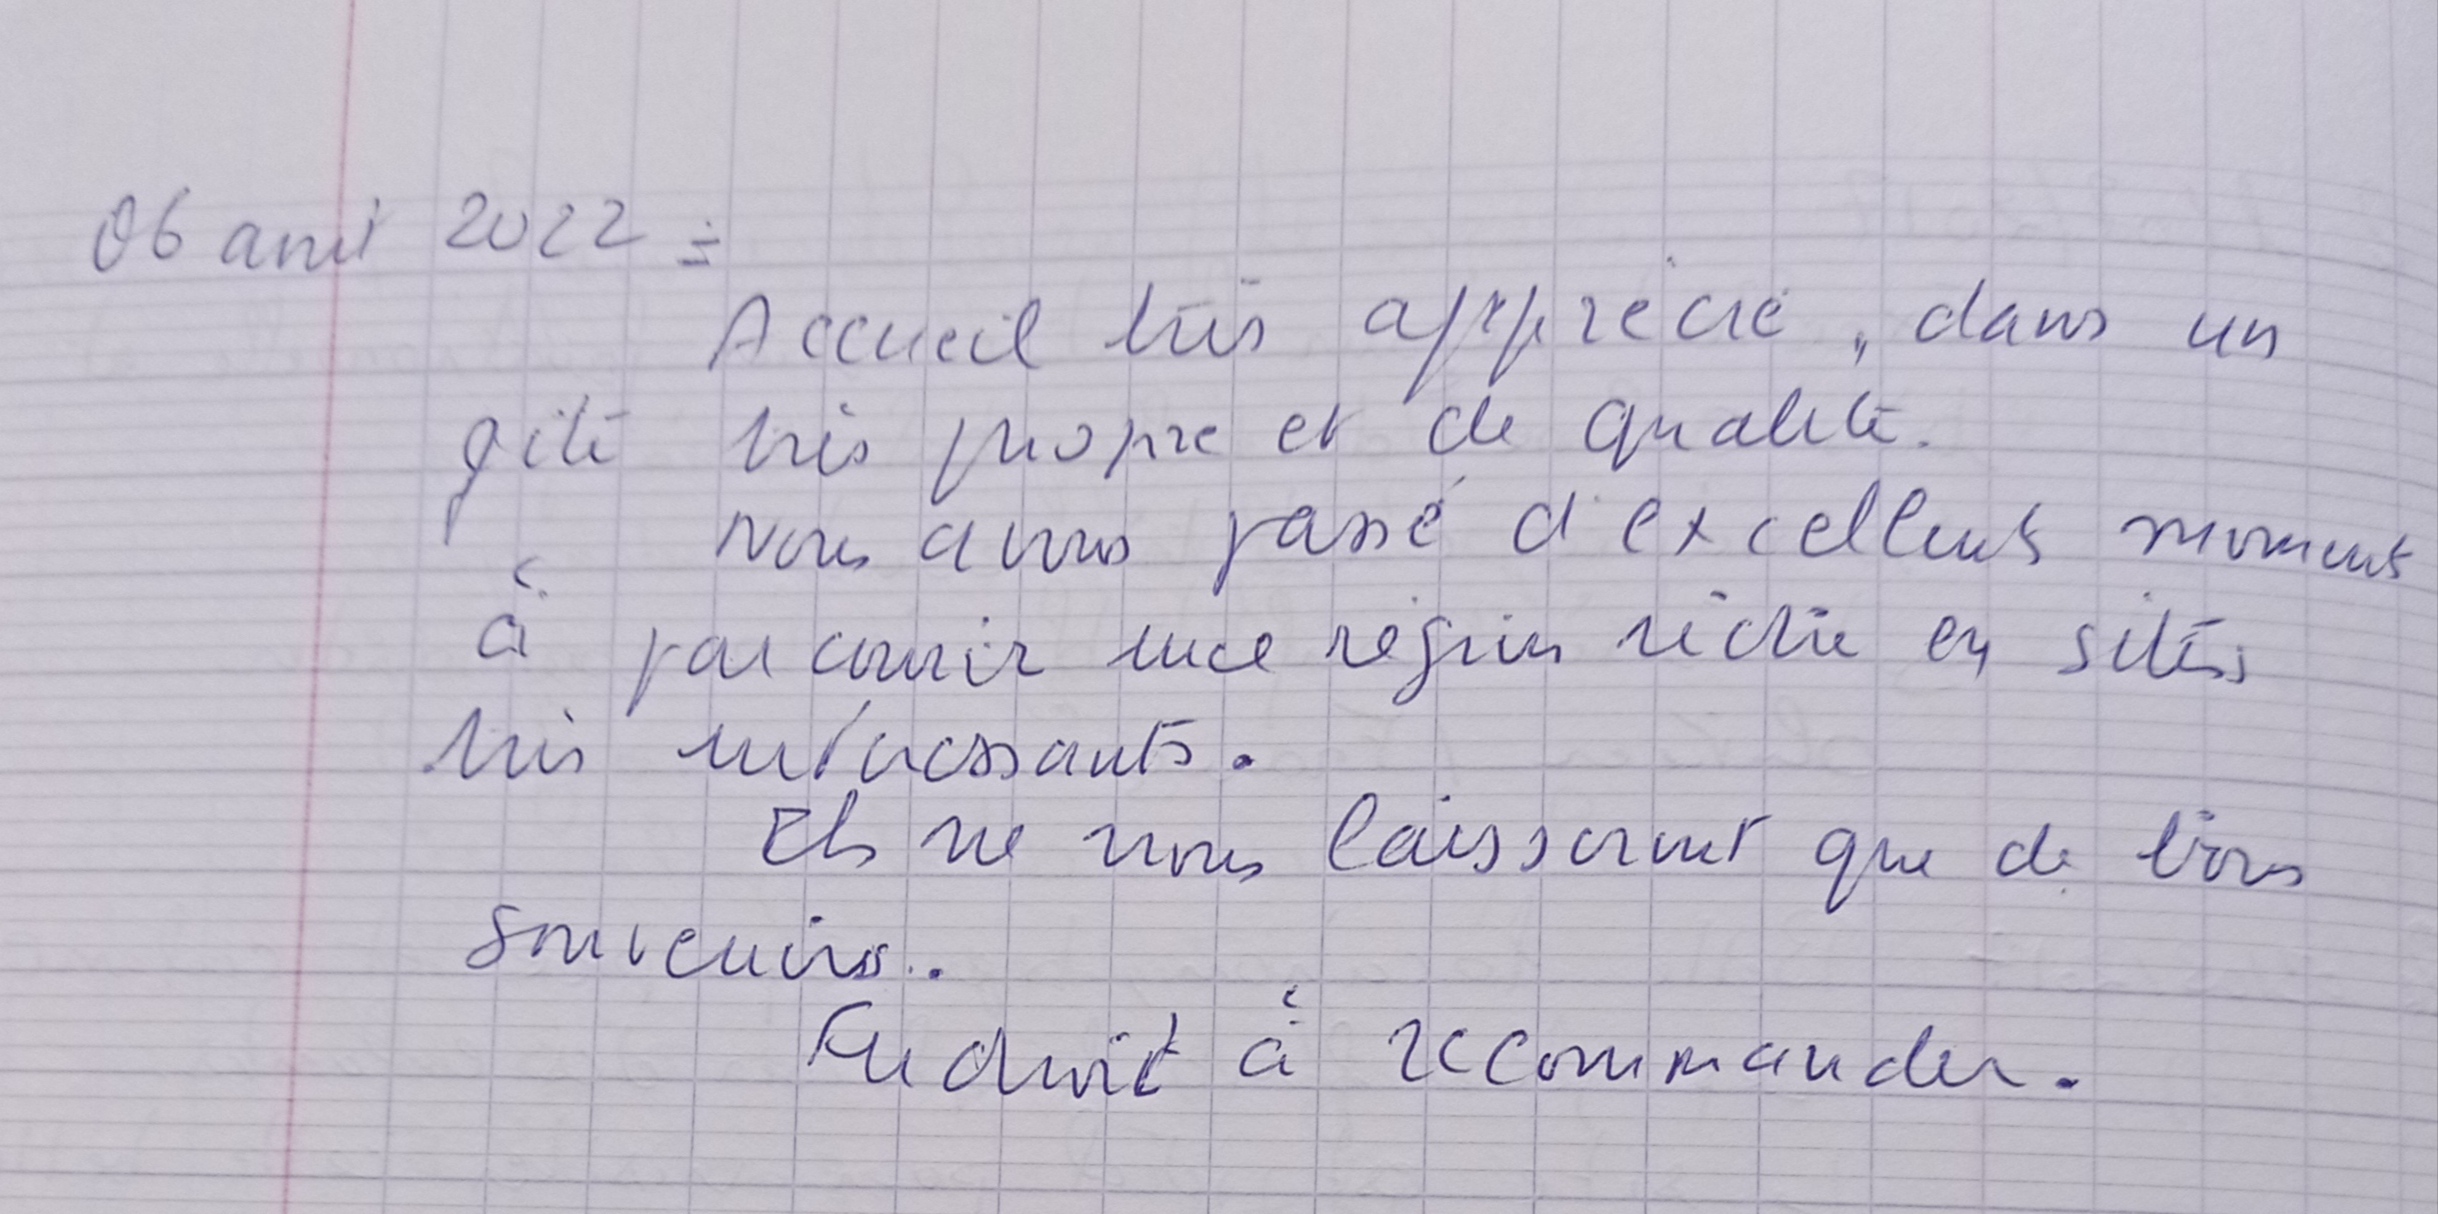 06 avril 2022 :
Accueil très apprécié, dans un
gite très propre et de qualité.
Nous avons passé d'excellents moments
à parcourir une région riche en sites
très intéressants.
Ils ne nous laisseront que de bons
souvenirs.
Endroit à recommander.